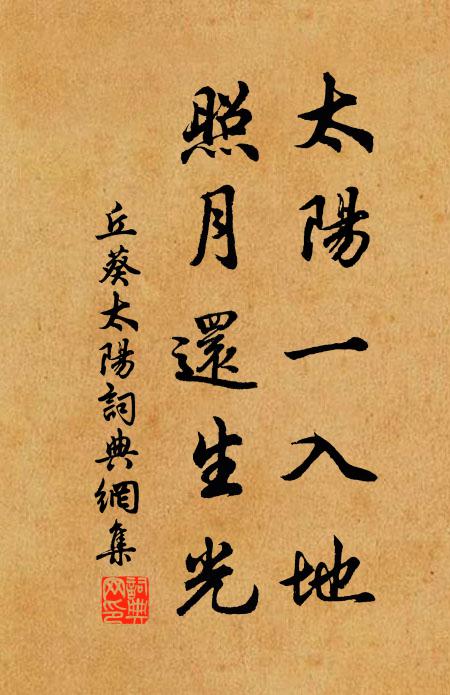 太陽一入地
照月還生光
丘葵太陽詞典網集
詞典
网印